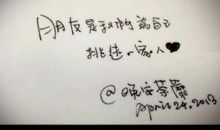 朋友是我們為自己
挑選的家人♥
@晚安荼蘼
April 24. 2013